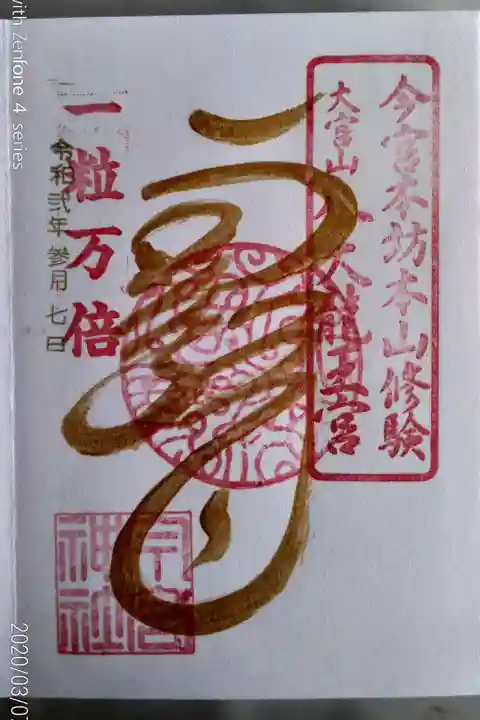 今宮木坊本山修験
大宮山 八大龍王宮
一粒万倍
令和弐年 参月 七日
今宮神社
with Zenfone 4 series
2020/03/07